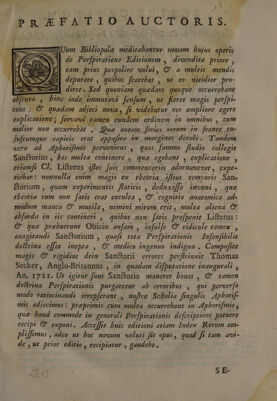 PRÆFATIO AUCTORIS.
QUum Bibliopolæ meditabantur novam hujus operis
de Perspiratione Editionem, divendita priore,
eam prius perpolire volui, & a multis mendis
depurare, quibus scatebat, ut eo nitidior pro-
diret. Sed quoniam quædam quoque occurrebant
obscura, hinc inde immutavi sensum, ut fieret magis perspi-
cuus: & quædam adjeci nova, si videbatur res ampliore egere
explicatione; servavi tamen eundem ordinem in omnibus, cum
melior non occurrebat. Quæ autem series rerum in fronte cu-
juscumque capitis erat apposita in margines detuli. Tandem
vero ad Aphorismos perveniens, quos summo studio collegit
Sanctorius, hos multa continere, quæ egebant, explicatione,
etiamsi Cl. Listerus istos suis commentariis adornavisset, repe-
riebar: nonnulla enim magis ex theoria istius temporis San-
ctorium, quam experimentis staticis deduxisse inveni, qua
theoria cum non satis erat exculta, & cognitio anatomica ad-
modum manca & mutila, nemini mirum erit, multa aliena &
absurda in iis contineri, quibus non satis prospexit Listerus:
& quæ præbuerunt Obicio ansam, insulse & ridicule tamen,
exagitandi Sanctorium, quasi tota Perspirationis Insensibilis
doctrina esset inepta, & medico ingenuo indigna. Composite
magis & rigidius dein Sanctorii errores perstrinxit Thomas
Secker, Anglo-Britannus, in quadam disputatione inaugurali,
An. 1721. Ut igitur suus Sanctorio maneret honos, & tamen
doctrina Perspirationis purgaretur ab erroribus, qui perverso
modo ratiocinandi irrepserant, nostra Scholia singulis Aphoris-
mis adjecimus: præprimis cum multa occurrebant in Aphorismis,
quæ haud commode in generali Perspirationis descriptione potuere
recipi & exponi. Accessit huic editioni etiam Index Rerum am-
plissimus, adeo ut hoc novum veluti sit opus, quod si tam avi-
de, ut prior editio, recipiatur, gaudebo.
SE-